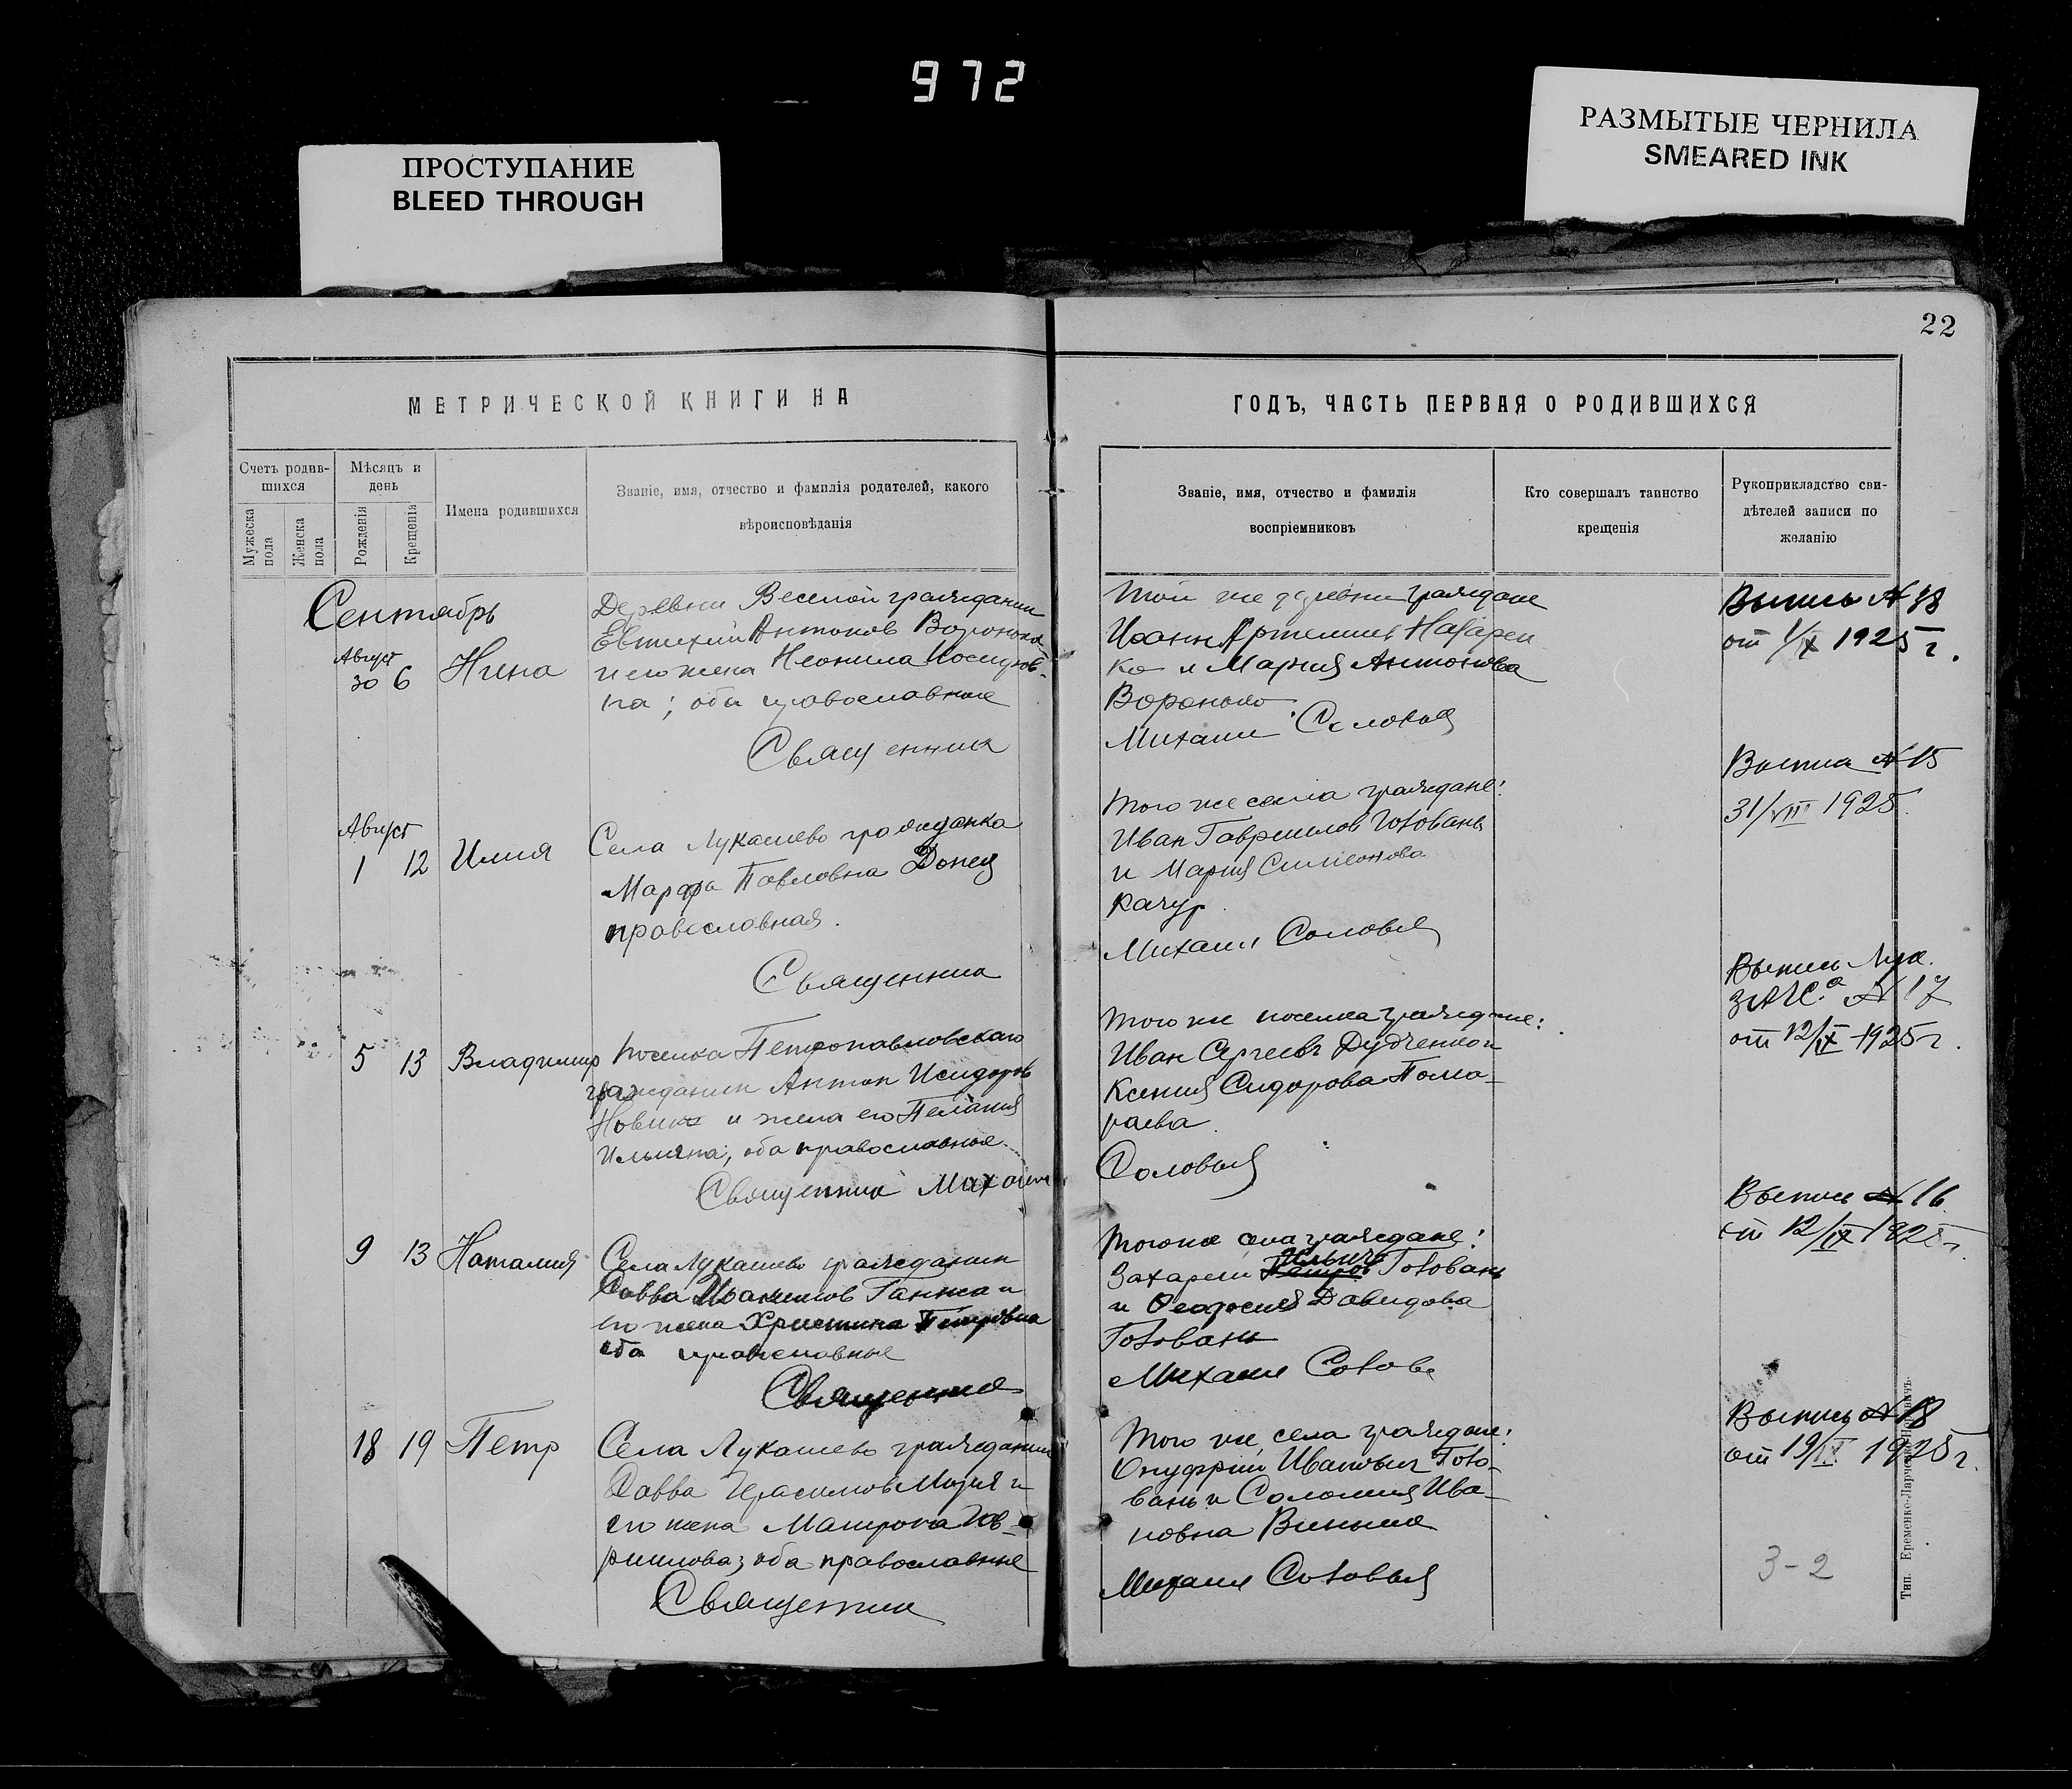 972
ПРОСТУПАНИЕ
BLEED THROUGH
РАЗМЫТЫЕ ЧЕРНИЛА
SMEARED INK
22
МЕТРИЧЕСКОЙ КНИГИ НА
Счетъ родив-
шихся
Мѣсяцъ и
день
Мужеска
пола
Женска
пола
Рожденія
Крещенія
Имена родившихся
Званіе, имя, отчество и фамилія родителей, какого
вѣроисповѣданія
Сентябрь
Август
30 6 Нина
Деревни Веселой гражданин
Евтихий Антонов Воронько
и его жена Неонила
на; оба православные
Священник
Август
1 12 Илия
Села Лукашево гражданка
Марфа Павловна Донец
православная.
Священник
5 13 Владимир
Поселка Петропавловскаго
гражданин Антон Исидоров
Новик и жена его Пелагия
Ильична, оба православные
Священник Михаил
9 13 Наталия
Села Лукашево гражданин
Савва Ганжа и
его жена Христина Петровна
оба православные
Священник
18 19 Петр
Села Лукашево гражданин
Савва Герасимов и
его жена Матрона Гав-
риилова; оба православные
Священник
ГОДЪ, ЧАСТЬ ПЕРВАЯ О РОДИВШИХСЯ
Званіе, имя, отчество и фамилія
воспріемниковъ
Кто совершалъ таинство
крещенія
Рукоприкладство сви-
дѣтелей записи по
желанію
Той же деревни граждане
Иоанн Артемиев Назарен
ко и Мария Антонова
Воронько
Михаил Соловья
Того же села граждане:
Иван Гавриилов Головань
и Мария Симеонова
Качур
Михаил Соловья
Того же поселка граждане:
Иван Сергеевъ Дудченко и
Ксения Сидорова
раева.
Соловья
Того же села граждане:
Ильич
Захарий Петров Головань
и Феодосия Давидова
Головань
Михаил Солов
Того же села граждане:
Онуфрий Иванович Голо-
вань и Соломия Ива-
новна
Михаил Соловья
Выпись №
от 1/X 1925 г.
Выпись № 15
31/VIII 1925
Выпись Лук.
ЗАГС.а № 17
от 12/IX 1925 г.
Выпись № 16
от 12/IX 1925 г.
Выпись № 18
от 19/IX 1925 г.
3-2